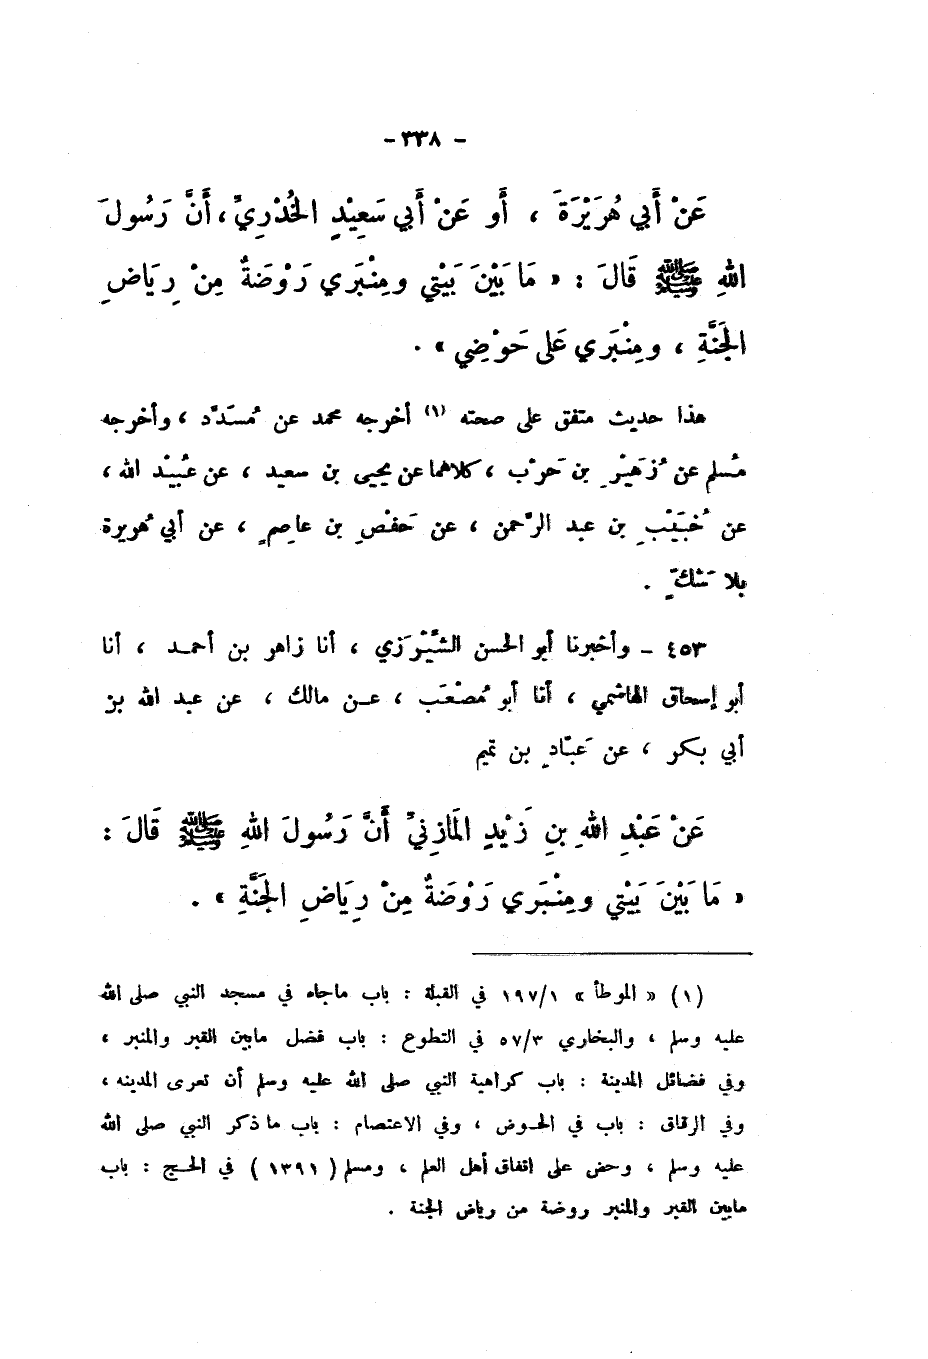 - ٣٣٨ -
عَنْ أَبِي هُرَيْرَةَ ، أَو عَنْ أَبِي سَعِيْدٍ الخُدْرِيِّ ، أَنَّ رَسُولَ
اللهِ ﷺ قَالَ : « مَا بَيْنَ بَيْتِي ومِنْبَرِي رَوْضَةٌ مِنْ رِيَاضِ
الجَنَّةِ ، ومِنْبَرِي عَلى حَوْضِي » .
هذا حديث متفق على صحته (١) أخرجه محمد عن مُسَدَّد ، وأخرجه
مُسلم عن زُهَيْرِ بن حَرْب ، كلاهما عن يحيى بن سعيد ، عن عُبيْد الله ،
عن خُبَيْبِ بن عبد الرَّحمن ، عن حَفْصِ بن عاصمٍ ، عن أبي هُريرة
بلا شَكٍّ .
٤٥٣ - وأخبرنا أبو الحسن الشِّيْرَزي ، أنا زاهر بن أحمـد ، أنا
أبو إسحاق الهاشمي ، أنا أبو مُصْعَب ، عـن مالك ، عن عبد الله بن
أبي بكر ، عن عَبَّادِ بن تميم
عَنْ عَبْدِ اللهِ بنِ زَيْدٍ المَازِنِيِّ أَنَّ رَسُولَ اللهِ ﷺ قَالَ :
« مَا بَيْنَ بَيْتِي ومِنْبَرِي رَوْضَةٌ مِنْ رِيَاضِ الجَنَّةِ » .
(١) « الموطأ » ١٩٧/١ في القبلة : باب ماجاء في مسجد النبي صلى الله
عليه وسلم ، والبخاري ٥٧/٣ في التطوع : باب فضل مابين القبر والمنبر ،
وفي فضائل المدينة : باب كراهية النبي صلى الله عليه وسلم أن تعرى المدينه ،
وفي الرقاق : باب في الحـوض ، وفي الاعتصام : باب ما ذكر النبي صلى الله
عليه وسلم ، وحض على اتفاق أهل العلم ، ومسلم ( ١٣٩١ ) في الحـج : باب
مابين القبر والمنبر روضة من رياض الجنة .